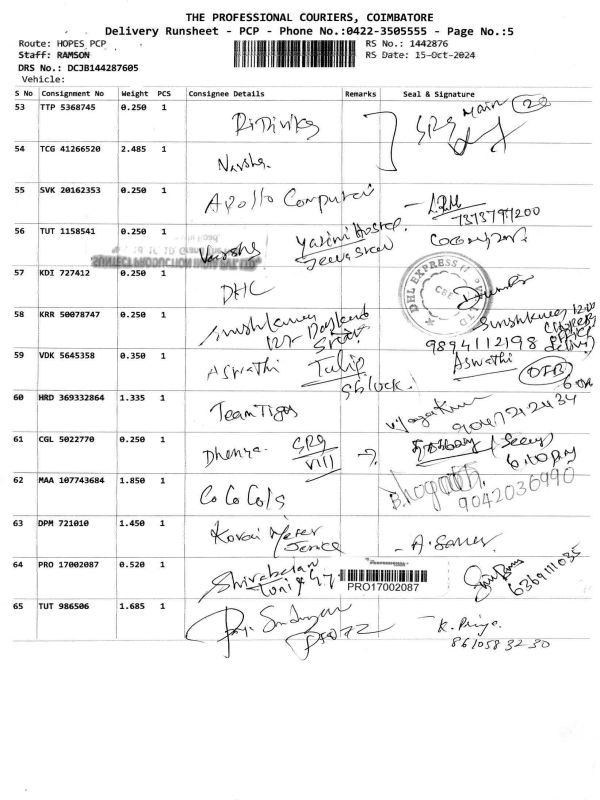 THE PROFESSIONAL COURIERS, COIMBATORE
Delivery Runsheet - PCP - Phone No.:0422-3505555 - Page No.:5
Route: HOPES PCP
RS No.: 1442876
Staff: RAMSON
RS Date: 15-Oct-2024
DRS No.: DCJB144287605
Vehicle:
S No Consignment No Weight PCS Consignee Details Remarks Seal & Signature
53 TTP 5368745 0.250 1 SRG Main 20
54 TCG 41266520 2.485 1 Varsha
55 SVK 20162353 0.250 1 Apollo Computer
56 TUT 1158541 0.250 1 Varsha Yazini Hostel
SUNTECT PRODUCTION INDIA PVT LTD
57 KDI 727412 0.250 1 DHL
DHL EXPRESS
58 KRR 50078747 0.250 1
9894112198
59 VDK 5645358 0.350 1 Aswathi Tulip Aswathi
S block.
60 HRD 369332864 1.335 1 Team Tigos Vijayakumar
9047212434
61 CGL 5022770 0.250 1 Dhenya. SRG VIII
6.10 pm
62 MAA 107743684 1.850 1 Co Co Cols
9042036990
63 DPM 721010 1.450 1 Kovai Meter Service
64 PRO 17002087 0.520 1 Shivabalan
PRO17002087
6369111035
65 TUT 986506 1.685 1 K. Priya.
861058 32 30